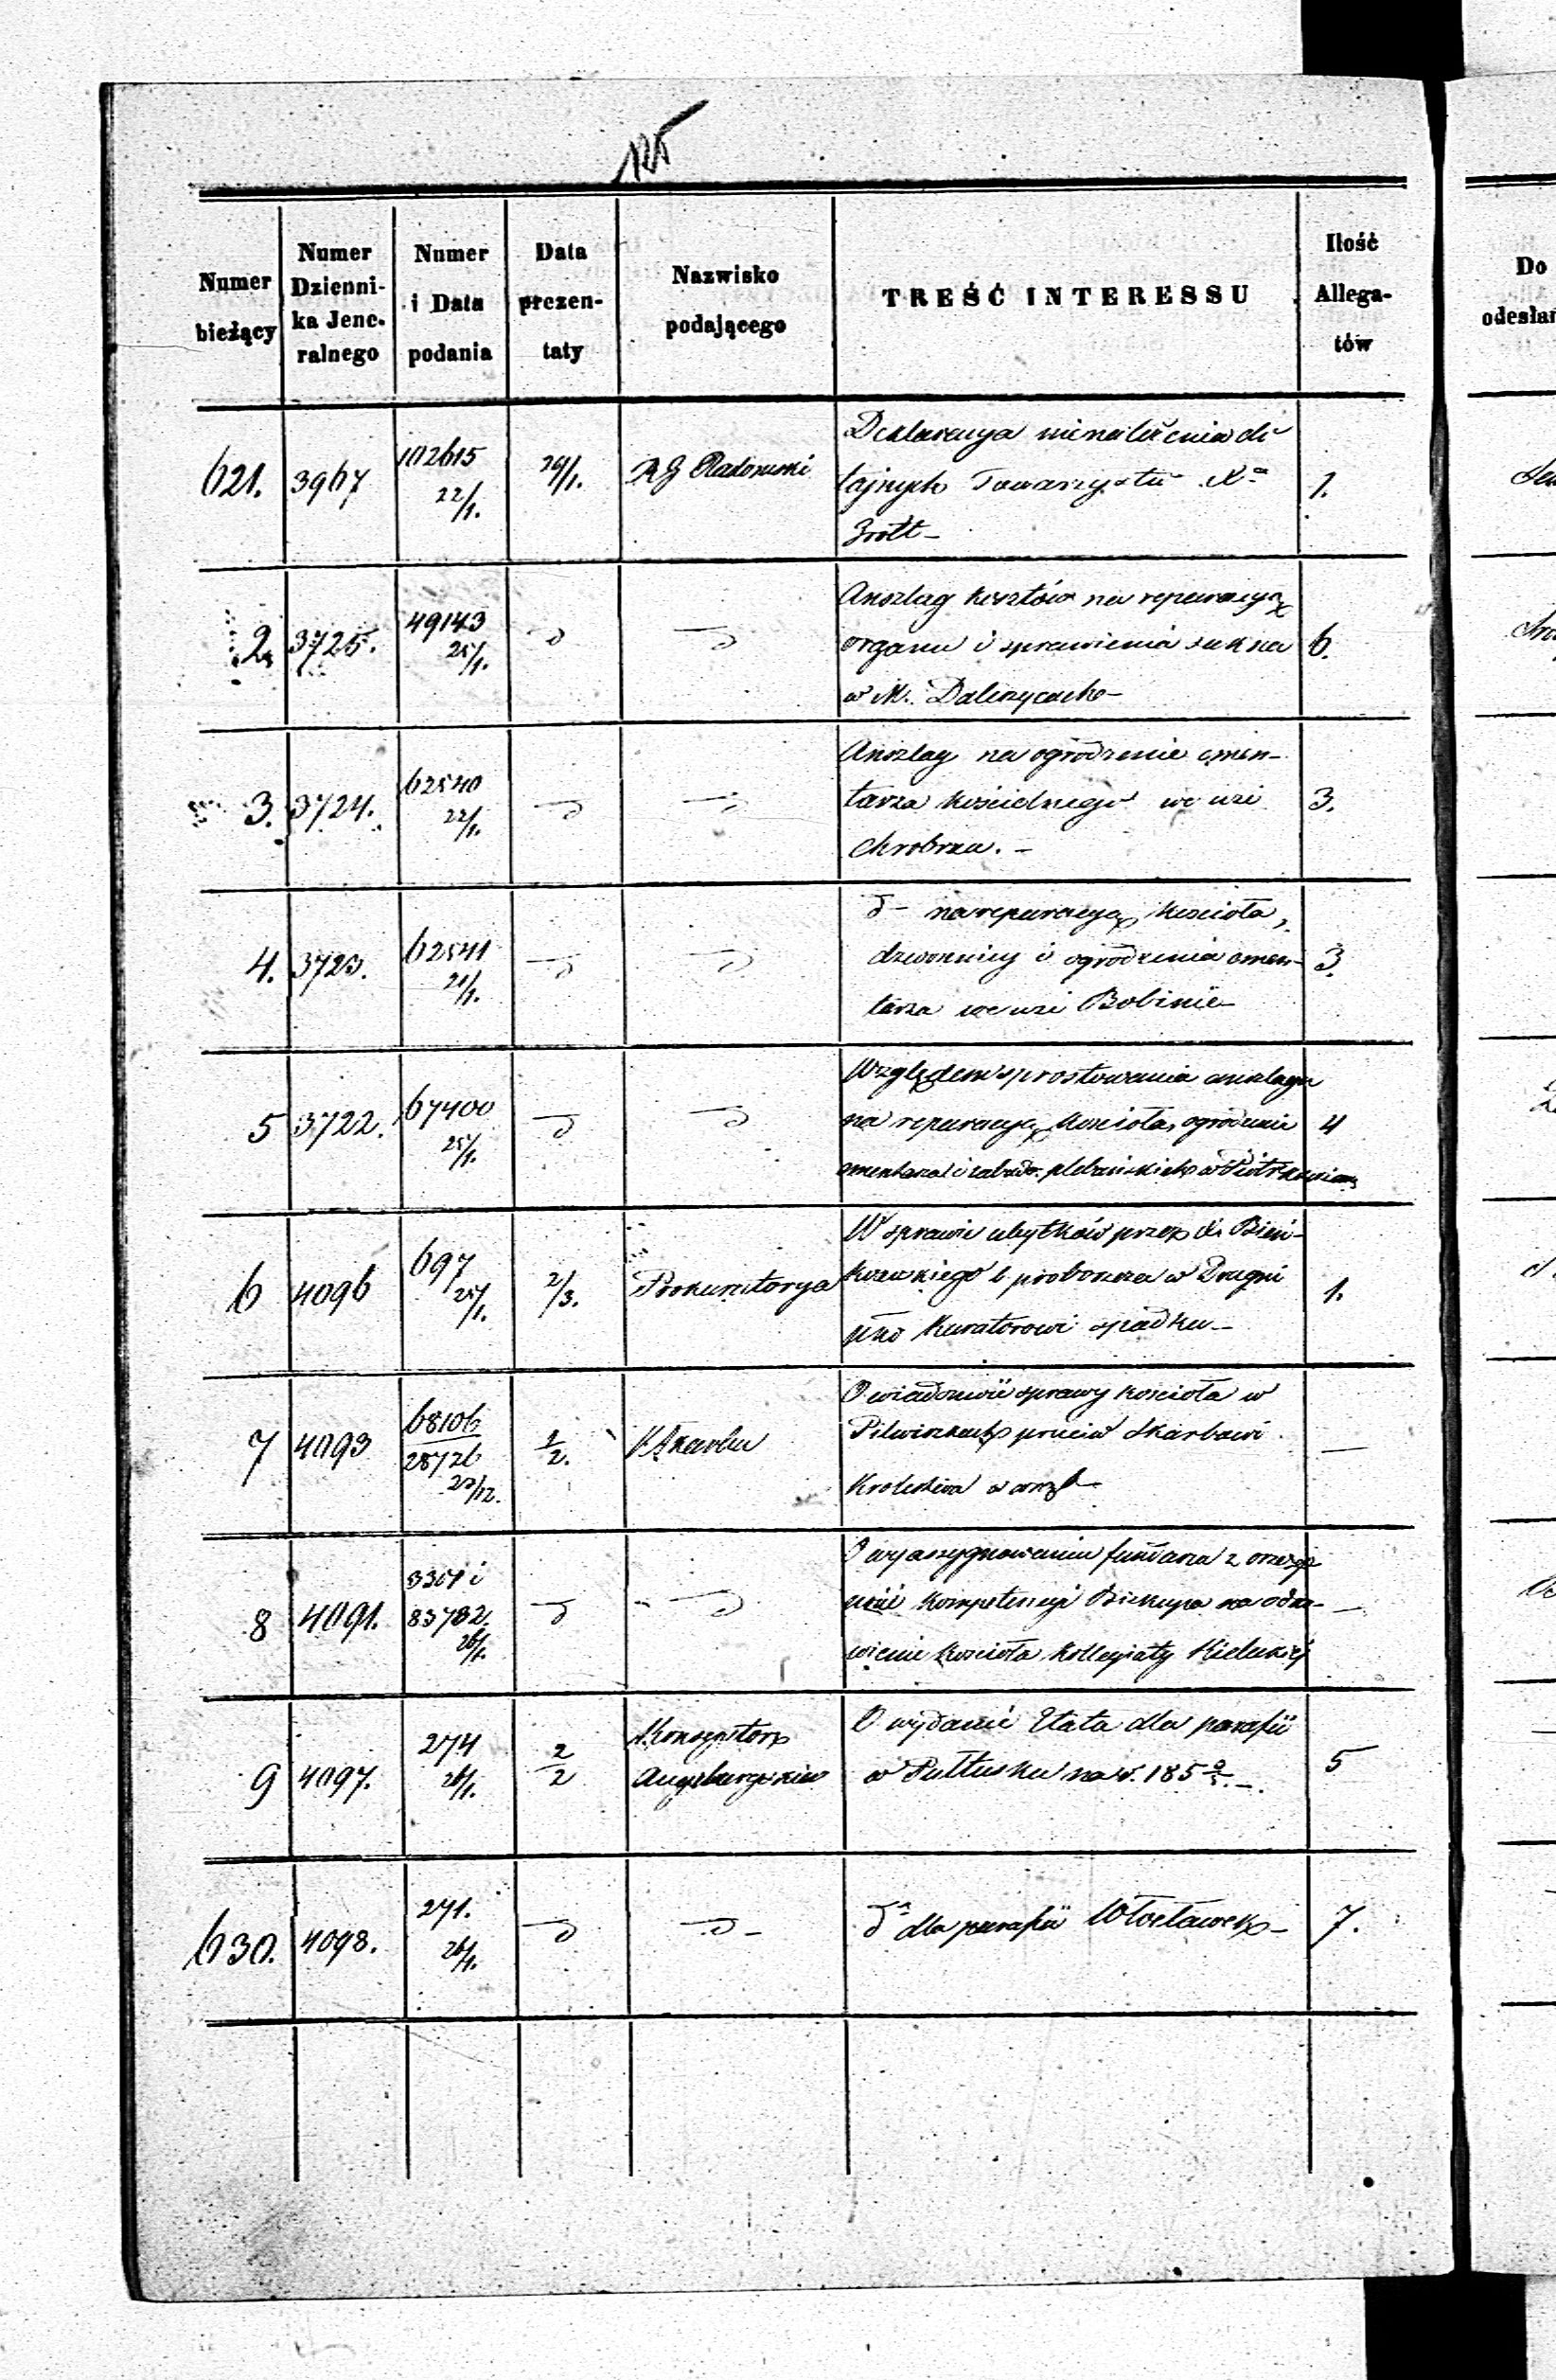 125
Numer bieżący
Numer Dzienni-ka Jene-ralnego
Numer i Data podania
Data prezen-taty
Nazwisko podającego
TREŚĆ INTERESSU
Ilość Allega-tów
Do
odesłan
621. 3967 102615 22/1. 29/1. RG Radomski Deklaracya nienależenia do
tajnych Towarzystw Xa 1.
Zrołt –
2 3725. 49143 25/1. d d Anszlag kosztów na reperacyą
organu i sprawienia sukna 6.
w M. Daleszycach –
3. 3724. 62540 22/1. d d Anszlag na ogrodzenie cmen-
tarza kościelnego we wsi 3.
Chrobrzu. –
4. 3723. 62541 21/1. d d d – na reperacyą kościoła,
dzwonnicy i ogrodzenia cmen- 3.
tarza we wsi Bobinie –
5 3722. 67400 25/1. d d Względem sprostowania anszlagu
na reperacyą kościoła, ogrodzenie 4
cmentarza i zabud. plebańskich w Piotrkowicach
6 4096 697 25/1. 2/3. Prokuratorya W sprawie ubytków przez X. Bień-
kowskiego b proboszcza w Drugni 1.
jako Kuratorowi spadku –
7 4093 68106 28726 23/12. 1/2. K Skarbu O wiadomość sprawy kościoła w
Pilwiszkach przeciw Skarbowi –
Królestwa
8 4091. 3361 i 83782 26/1. d d O wyassygnowaniu funduszu z oszczęd
ności kompetencyi Biskupa na odno- –
wienie kościoła kollegiaty Kieleckiej
9 4097. 274 26/1. 2/2 Konsystorz O wydanie Etatu dla parafii
Augsburgskiego w Pułtusku na r. 185 5
630. 4098. 271. 26/1. d d – d° dla parafii Włocławek – 7.